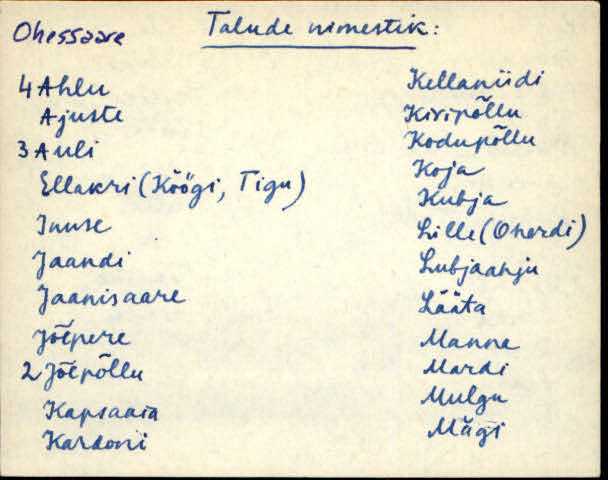 Ohessaare
Talude nimestik:
4 Ahlu
Ajuste
3 Auli
Ellakri (Köögi, Tigu)
Innse
Jaandi
Jaanisaare
Jõepere
2 Jõepõllu
Kapsaaia
Kardoni
Kellaniidi
Kivipõllu
Kodupõllu
Koja
Kubja
Lille (Onardi)
Lubjaahju
Lääta
Manna
Mardi
Mulgu
Mägi